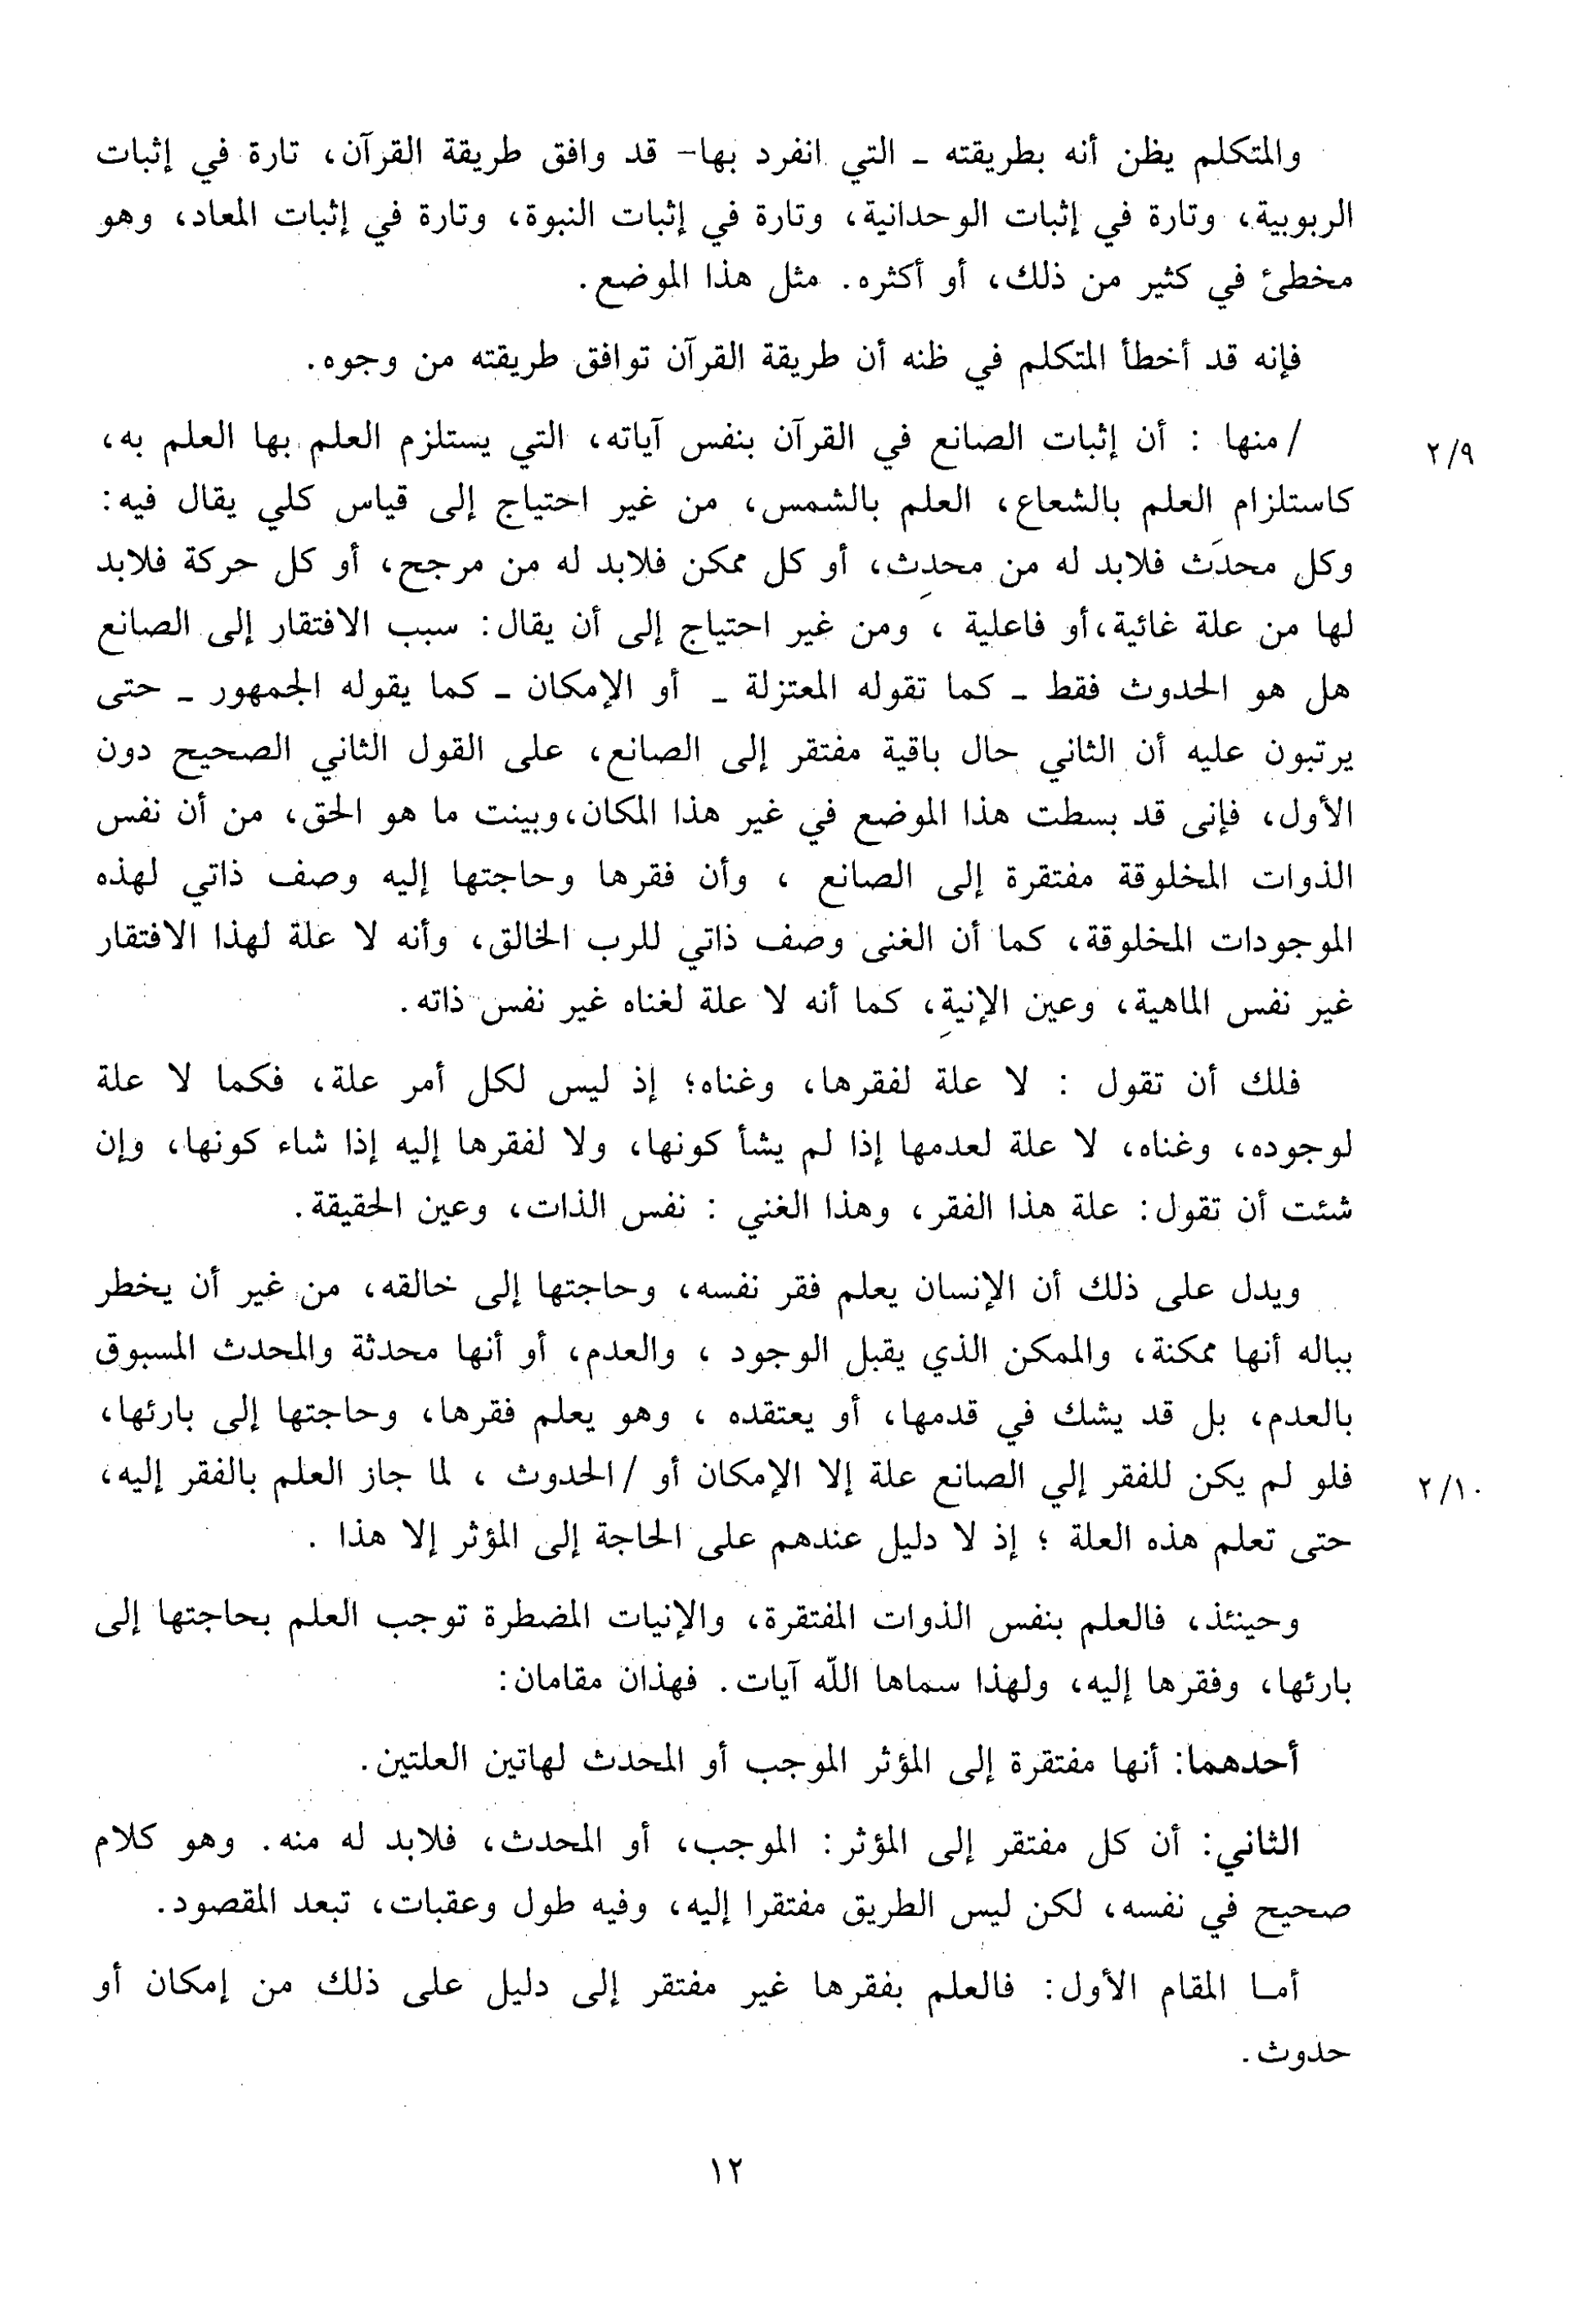 والمتكلم يظن أنه بطريقته ـ التي انفرد بها- قد وافق طريقة القرآن، تارة في إثبات
الربوبية، وتارة في إثبات الوحدانية، وتارة في إثبات النبوة، وتارة في إثبات المعاد، وهو
مخطئ في كثير من ذلك، أو أكثره. مثل هذا الموضع.
فإنه قد أخطأ المتكلم في ظنه أن طريقة القرآن توافق طريقته من وجوه.
٢/٩ / منها : أن إثبات الصانع في القرآن بنفس آياته، التي يستلزم العلم بها العلم به،
كاستلزام العلم بالشعاع، العلم بالشمس، من غير احتياج إلى قياس كلي يقال فيه:
وكل محدَث فلابد له من محدِث، أو كل ممكن فلابد له من مرجح، أو كل حركة فلابد
لها من علة غائية،أو فاعلية ، ومن غير احتياج إلى أن يقال: سبب الافتقار إلى الصانع
هل هو الحدوث فقط ـ كما تقوله المعتزلة ـ أو الإمكان ـ كما يقوله الجمهور ـ حتى
يرتبون عليه أن الثاني حال باقية مفتقر إلى الصانع، على القول الثاني الصحيح دون
الأول، فإنى قد بسطت هذا الموضع في غير هذا المكان،وبينت ما هو الحق، من أن نفس
الذوات المخلوقة مفتقرة إلى الصانع ، وأن فقرها وحاجتها إليه وصف ذاتي لهذه
الموجودات المخلوقة، كما أن الغنى وصف ذاتي للرب الخالق، وأنه لا علة لهذا الافتقار
غير نفس الماهية، وعين الإنيةِ، كما أنه لا علة لغناه غير نفس ذاته.
فلك أن تقول : لا علة لفقرها، وغناه؛ إذ ليس لكل أمر علة، فكما لا علة
لوجوده، وغناه، لا علة لعدمها إذا لم يشأ كونها، ولا لفقرها إليه إذا شاء كونها، وإن
شئت أن تقول: علة هذا الفقر، وهذا الغني : نفس الذات، وعين الحقيقة.
ويدل على ذلك أن الإنسان يعلم فقر نفسه، وحاجتها إلى خالقه، من غير أن يخطر
بباله أنها ممكنة، والممكن الذي يقبل الوجود ، والعدم، أو أنها محدثة والمحدث المسبوق
بالعدم، بل قد يشك في قدمها، أو يعتقده ، وهو يعلم فقرها، وحاجتها إلى بارئها،
٢/١٠ فلو لم يكن للفقر إلي الصانع علة إلا الإمكان أو /الحدوث ، لما جاز العلم بالفقر إليه،
حتى تعلم هذه العلة ؛ إذ لا دليل عندهم على الحاجة إلى المؤثر إلا هذا .
وحينئذ، فالعلم بنفس الذوات المفتقرة، والإنيات المضطرة توجب العلم بحاجتها إلى
بارئها، وفقرها إليه، ولهذا سماها اللّه آيات. فهذان مقامان:
أحدهما: أنها مفتقرة إلى المؤثر الموجب أو المحدث لهاتين العلتين.
الثاني: أن كل مفتقر إلى المؤثر: الموجب، أو المحدث، فلابد له منه. وهو كلام
صحيح في نفسه، لكن ليس الطريق مفتقرا إليه، وفيه طول وعقبات، تبعد المقصود.
أمـا المقام الأول: فالعلم بفقرها غير مفتقر إلى دليل على ذلك من إمكان أو
حدوث.
١٢